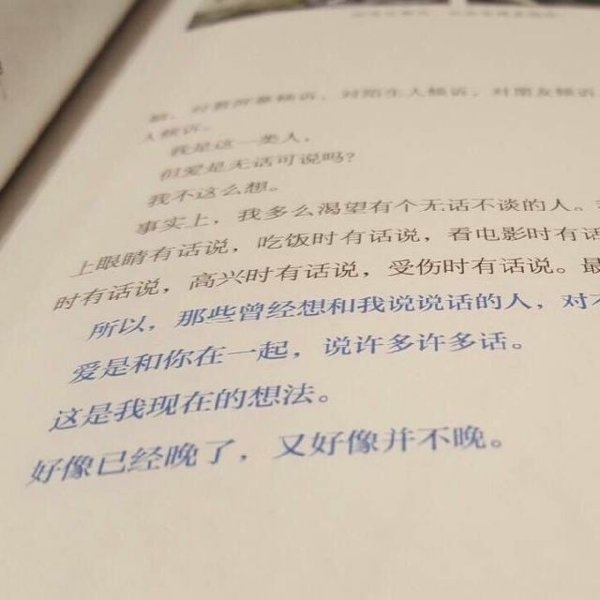 对陌生人倾诉，对朋友倾诉
人倾诉。
我是这一类人。
但爱是无话可说吗？
我不这么想。
事实上，我多么渴望有个无话不谈的人。
上眼睛有话说，吃饭时有话说，看电影时有话
时有话说，高兴时有话说，受伤时有话说。最
所以，那些曾经想和我说说话的人，对不
爱是和你在一起，说许多许多话。
这是我现在的想法。
好像已经晚了，又好像并不晚。